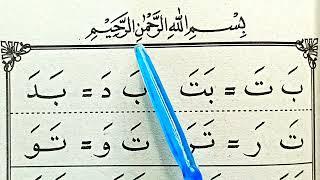 بِسْمِ اللهِ الرَّحْمٰنِ الرَّحِيْمِ
بَ تَ = بَتَ بَ دَ = بَدَ
تَ رَ = تَرَ تَ وَ = تَوَ